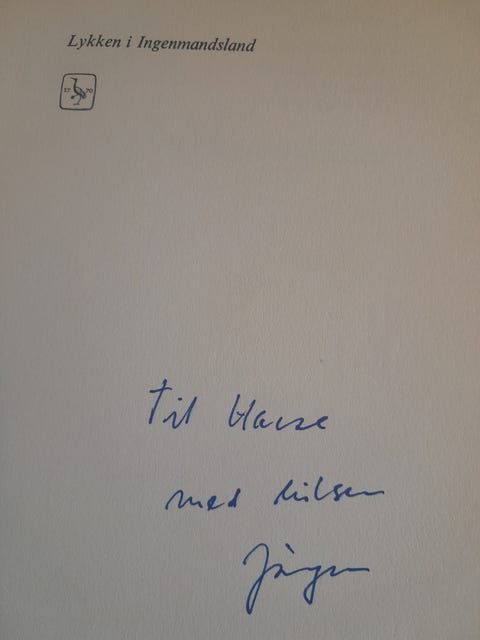 Lykken i Ingenmandsland
17 70
Til
med hilsen
Jørgen